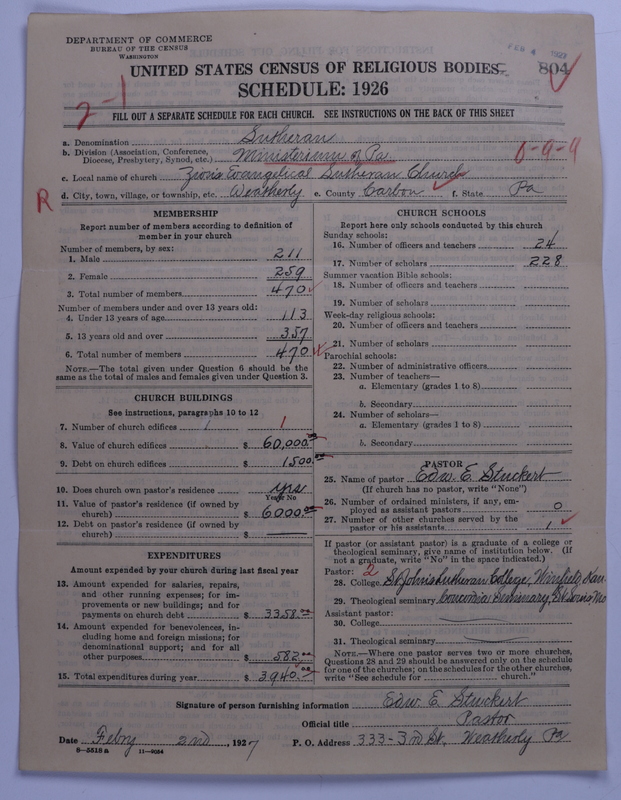 DEPARTMENT OF COMMERCE
BUREAU OF THE CENSUS
WASHINGTON
FEB 4 1927
UNITED STATES CENSUS OF RELIGIOUS BODIES
804
SCHEDULE: 1926
2-1
FILL OUT A SEPARATE SCHEDULE FOR EACH CHURCH. SEE INSTRUCTIONS ON THE BACK OF THIS SHEET
a. Denomination Lutheran
b. Division (Association, Conference, Diocese, Presbytery, Synod, etc.) Ministerium of Pa.
6-9-4
c. Local name of church Zion's Evangelical Lutheran Church
R
d. City, town, village, or township, etc. Weatherly e. County Carbon f. State Pa
MEMBERSHIP
Report number of members according to definition of
member in your church
Number of members, by sex:
1. Male 211
2. Female 259
3. Total number of members 470
Number of members under and over 13 years old:
4. Under 13 years of age 113
5. 13 years old and over 357
6. Total number of members 470
NOTE.—The total given under Question 6 should be the
same as the total of males and females given under Question 3.
CHURCH BUILDINGS
See instructions, paragraphs 10 to 12
7. Number of church edifices 1 1
8. Value of church edifices $ 60,000.00
9. Debt on church edifices $ 1500.00
10. Does church own pastor's residence yes
Yes or No
11. Value of pastor's residence (if owned by
church) $ 6000.00
12. Debt on pastor's residence (if owned by
church) $
EXPENDITURES
Amount expended by your church during last fiscal year
13. Amount expended for salaries, repairs,
and other running expenses; for im-
provements or new buildings; and for
payments on church debt $ 3358.00
14. Amount expended for benevolences, in-
cluding home and foreign missions; for
denominational support; and for all
other purposes $ 582.00
15. Total expenditures during year $ 3940.00
CHURCH SCHOOLS
Report here only schools conducted by this church
Sunday schools:
16. Number of officers and teachers 24
17. Number of scholars 228
Summer vacation Bible schools:
18. Number of officers and teachers
19. Number of scholars
Week-day religious schools:
20. Number of officers and teachers
21. Number of scholars
Parochial schools:
22. Number of administrative officers
23. Number of teachers—
a. Elementary (grades 1 to 8)
b. Secondary
24. Number of scholars—
a. Elementary (grades 1 to 8)
b. Secondary
PASTOR
25. Name of pastor Edw. E. Stuckert
(If church has no pastor, write "None")
26. Number of ordained ministers, if any, em-
ployed as assistant pastors 0
27. Number of other churches served by the
pastor or his assistants 1
If pastor (or assistant pastor) is a graduate of a college or
theological seminary, give name of institution below. (If
not a graduate, write "No" in the space indicated.)
Pastor: 2
28. College St. John's Lutheran College, Winfield, Kan.
29. Theological seminary Concordia Seminary, St. Louis, Mo
Assistant pastor:
30. College
31. Theological seminary
NOTE.—Where one pastor serves two or more churches,
Questions 28 and 29 should be answered only on the schedule
for one of the churches; on the schedules for the other churches,
write "See schedule for church."
Signature of person furnishing information Edw. E. Stuckert
Official title Pastor
Date Feby 2nd, 1927 P. O. Address 333-3rd St. Weatherly Pa
8—5518 a 11—9024